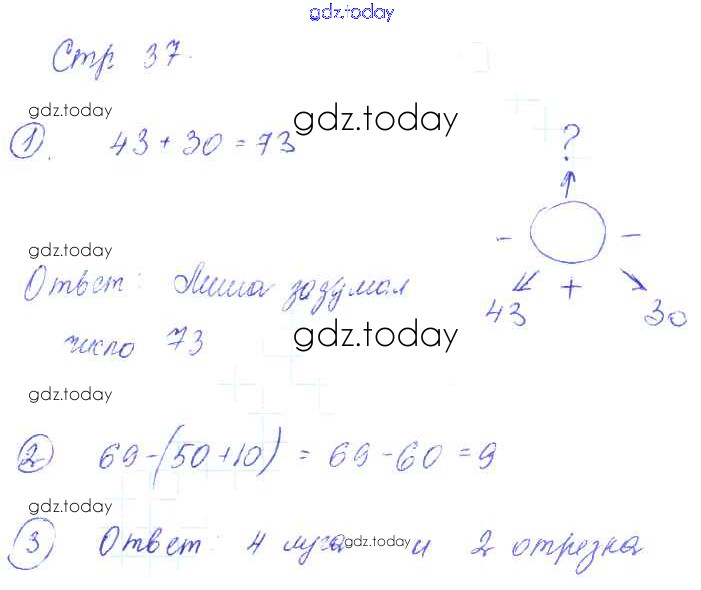 gdz.today
Стр 37.
gdz.today
1). 43 + 30 = 73
gdz.today
?
gdz.today
- -
Ответ: Миша задумал
43 + 30
число 73
gdz.today
gdz.today
2) 69-(50+10) = 69-60=9
gdz.today
3) Ответ: 4 луча и 2 отрезка
gdz.today